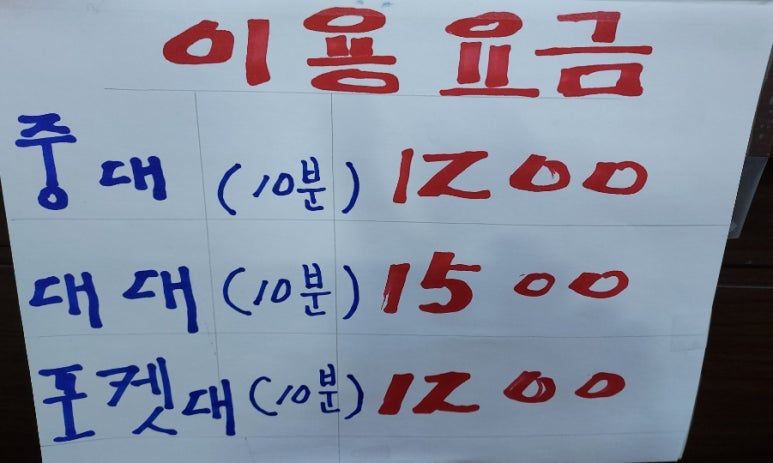 이용요금
중대 (10분) 1200
대대 (10분) 1500
포켓대 (10분) 1200